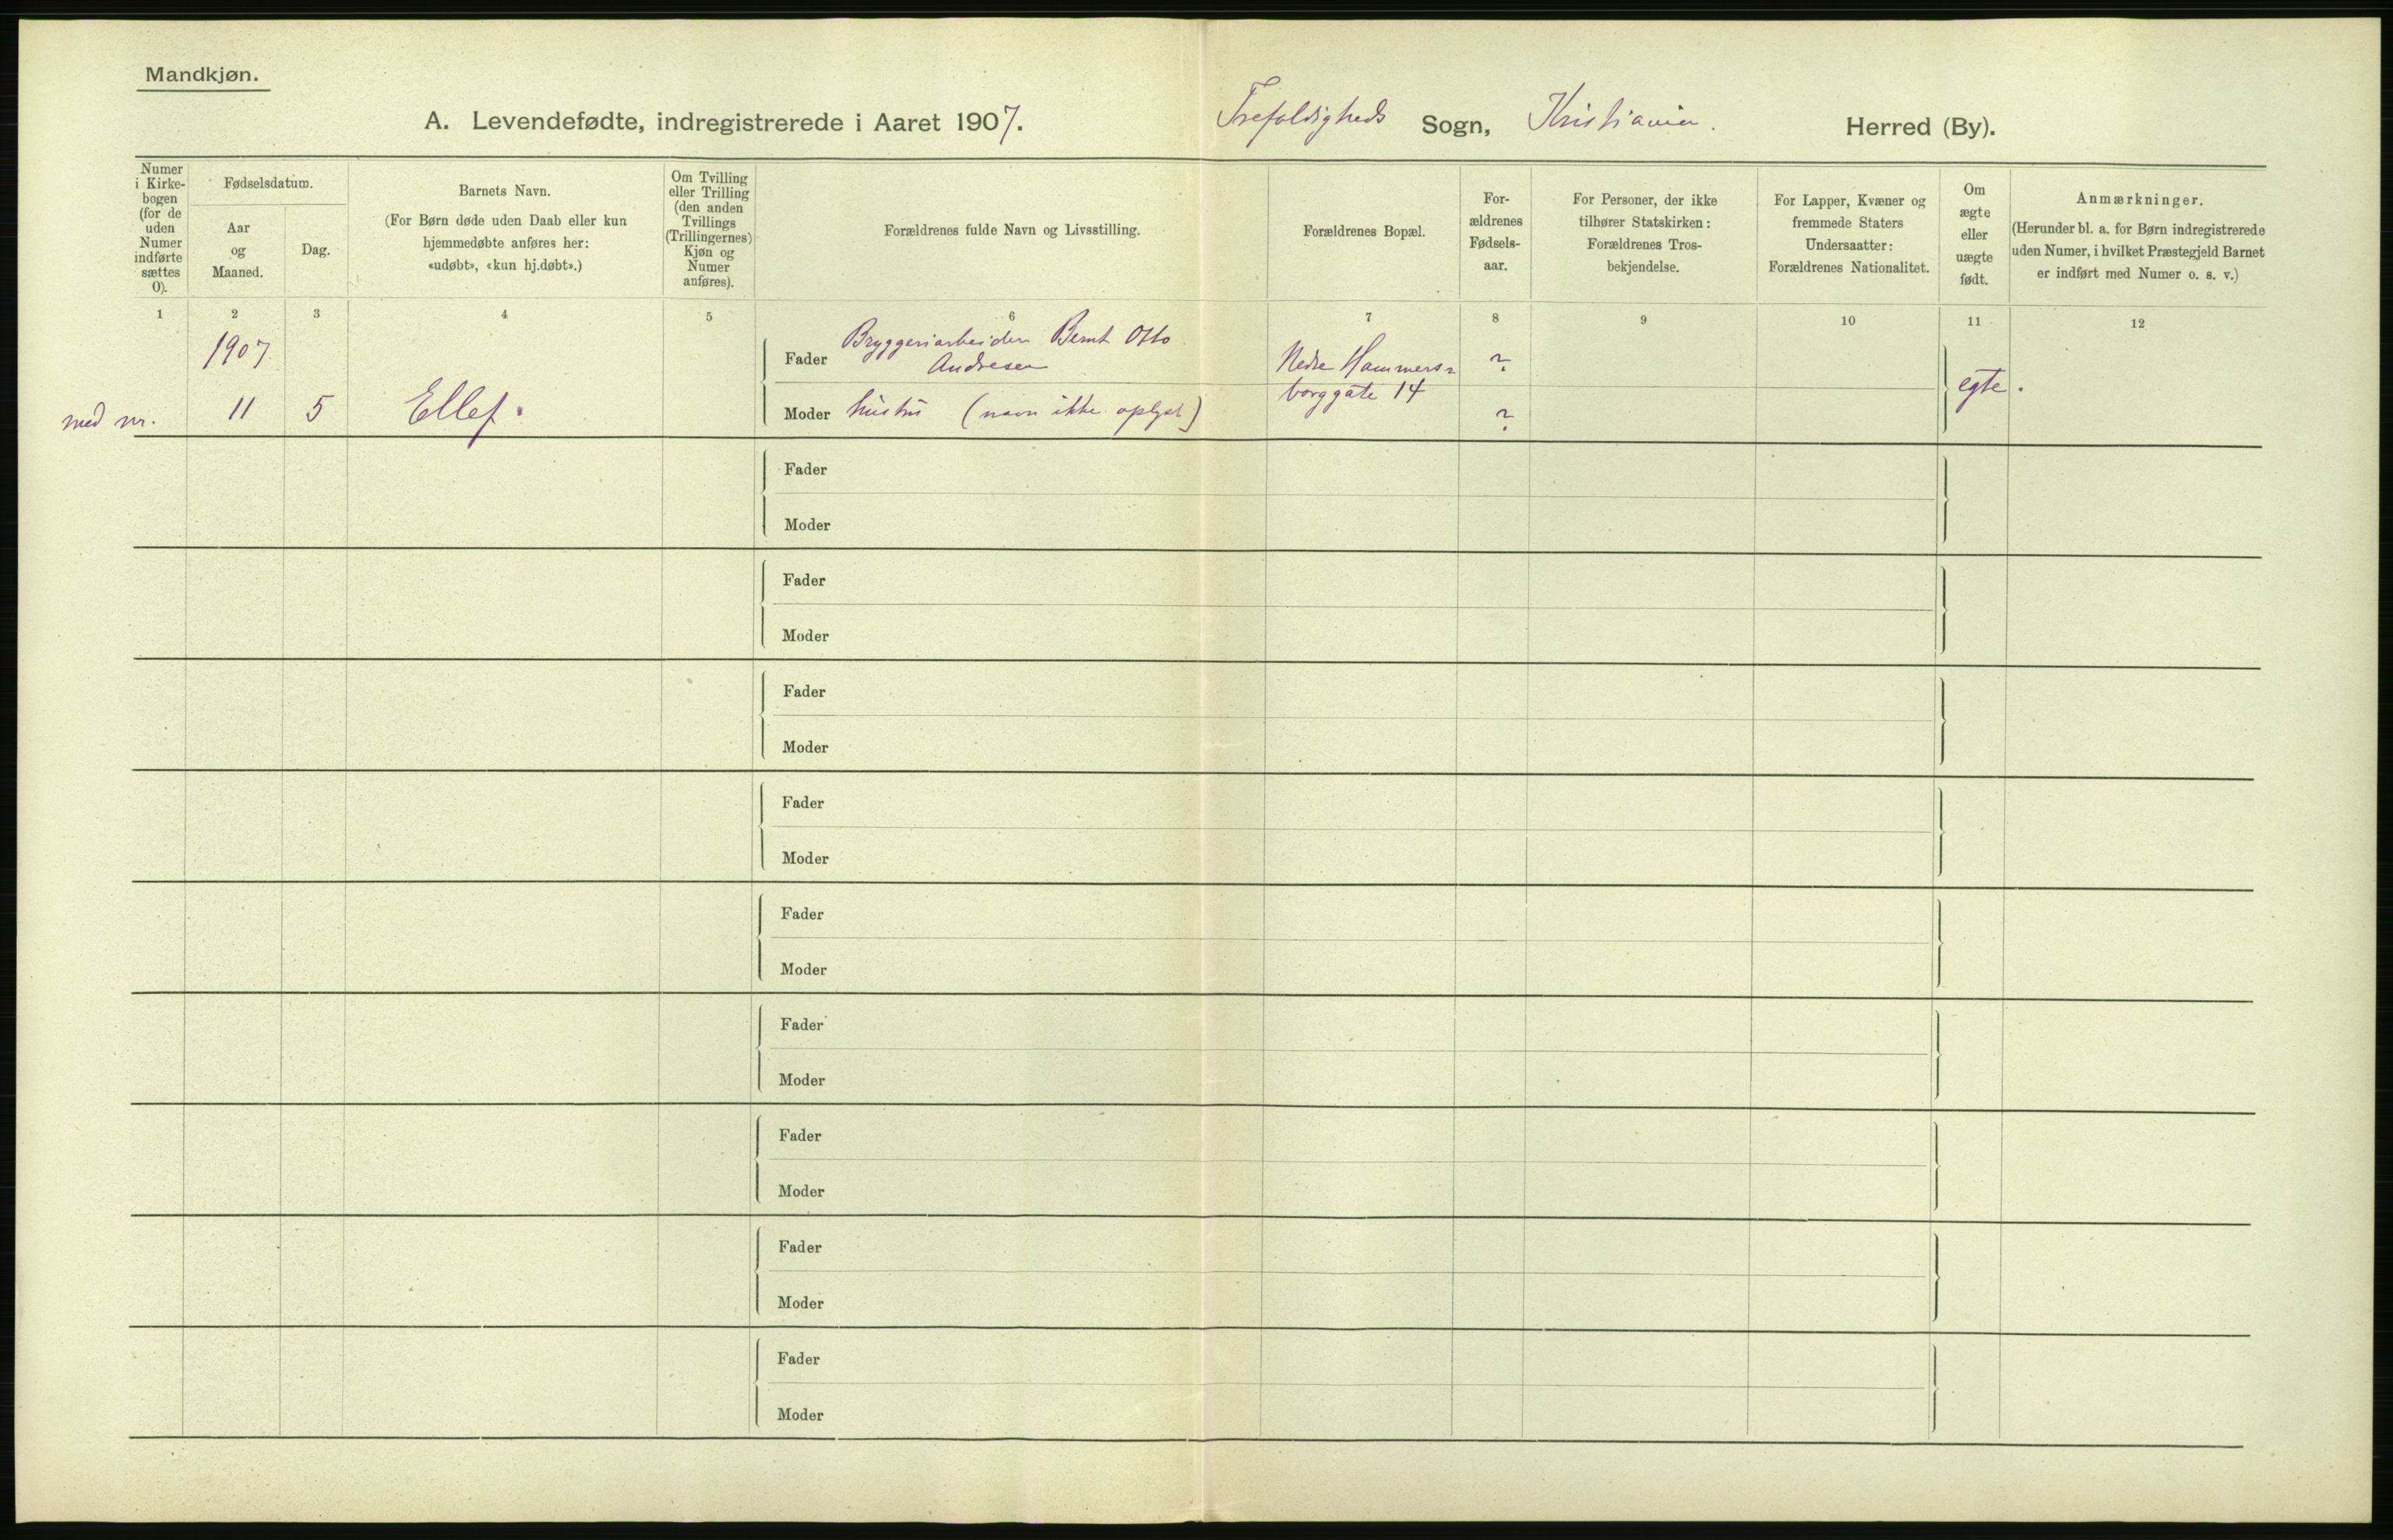 Mandkjøn.
A. Levendefødte, indregistrerede i Aaret 1907.
Trefoldigheds Sogn, Kristiania. Herred (By).
Numer
i Kirke-
bogen
(for de
uden
Numer
indførte
sættes
0).
Fødselsdatum.
Aar
og
Maaned.
Dag.
Barnets Navn.
(For Børn døde uden Daab eller kun
hjemmedøbte anføres her:
«udøbt», «kun hj.døbt».)
Om Tvilling
eller Trilling
(den anden
Tvillings
(Trillingernes)
Kjøn og
Numer
anføres).
Forældrenes fulde Navn og Livsstilling.
Forældrenes Bopæl.
For-
ældrenes
Fødsels-
aar.
For Personer, der ikke
tilhører Statskirken:
Forældrenes Tros-
bekjendelse.
For Lapper, Kvæner og
fremmede Staters
Undersaatter:
Forældrenes Nationalitet.
Om
ægte
eller
uægte
født.
Anmærkninger.
(Herunder bl. a. for Børn indregistrerede
uden Numer, i hvilket Præstegjeld Barnet
er indført med Numer o. s. v.)
1 2 3 4 5 6 7 8 9 10 11 12
med nr.
1907
11 5 Ellef.
Fader Bryggeriarbeider Bernt Otto
Andresen
Moder hustru (navn ikke oplyst)
Nedre Hammers-
borggate 14
?
?
egte.
Fader
Moder
Fader
Moder
Fader
Moder
Fader
Moder
Fader
Moder
Fader
Moder
Fader
Moder
Fader
Moder
Fader
Moder